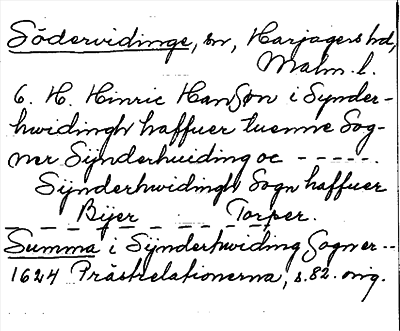 Södervidinge, sn, Harjagers hd,
Malm. l.
6. H. Hinric Hanßøn i Synder-
hwidingh haffuer tuenne Sog-
ner Sÿnderhuiding oc - - - - -.
Sÿnderhwidingh Sogn haffuer
Bÿer Torper.
Summa i Sÿnderhwiding Sogner --
1624 Prästrelationerna, s. 82. orig.